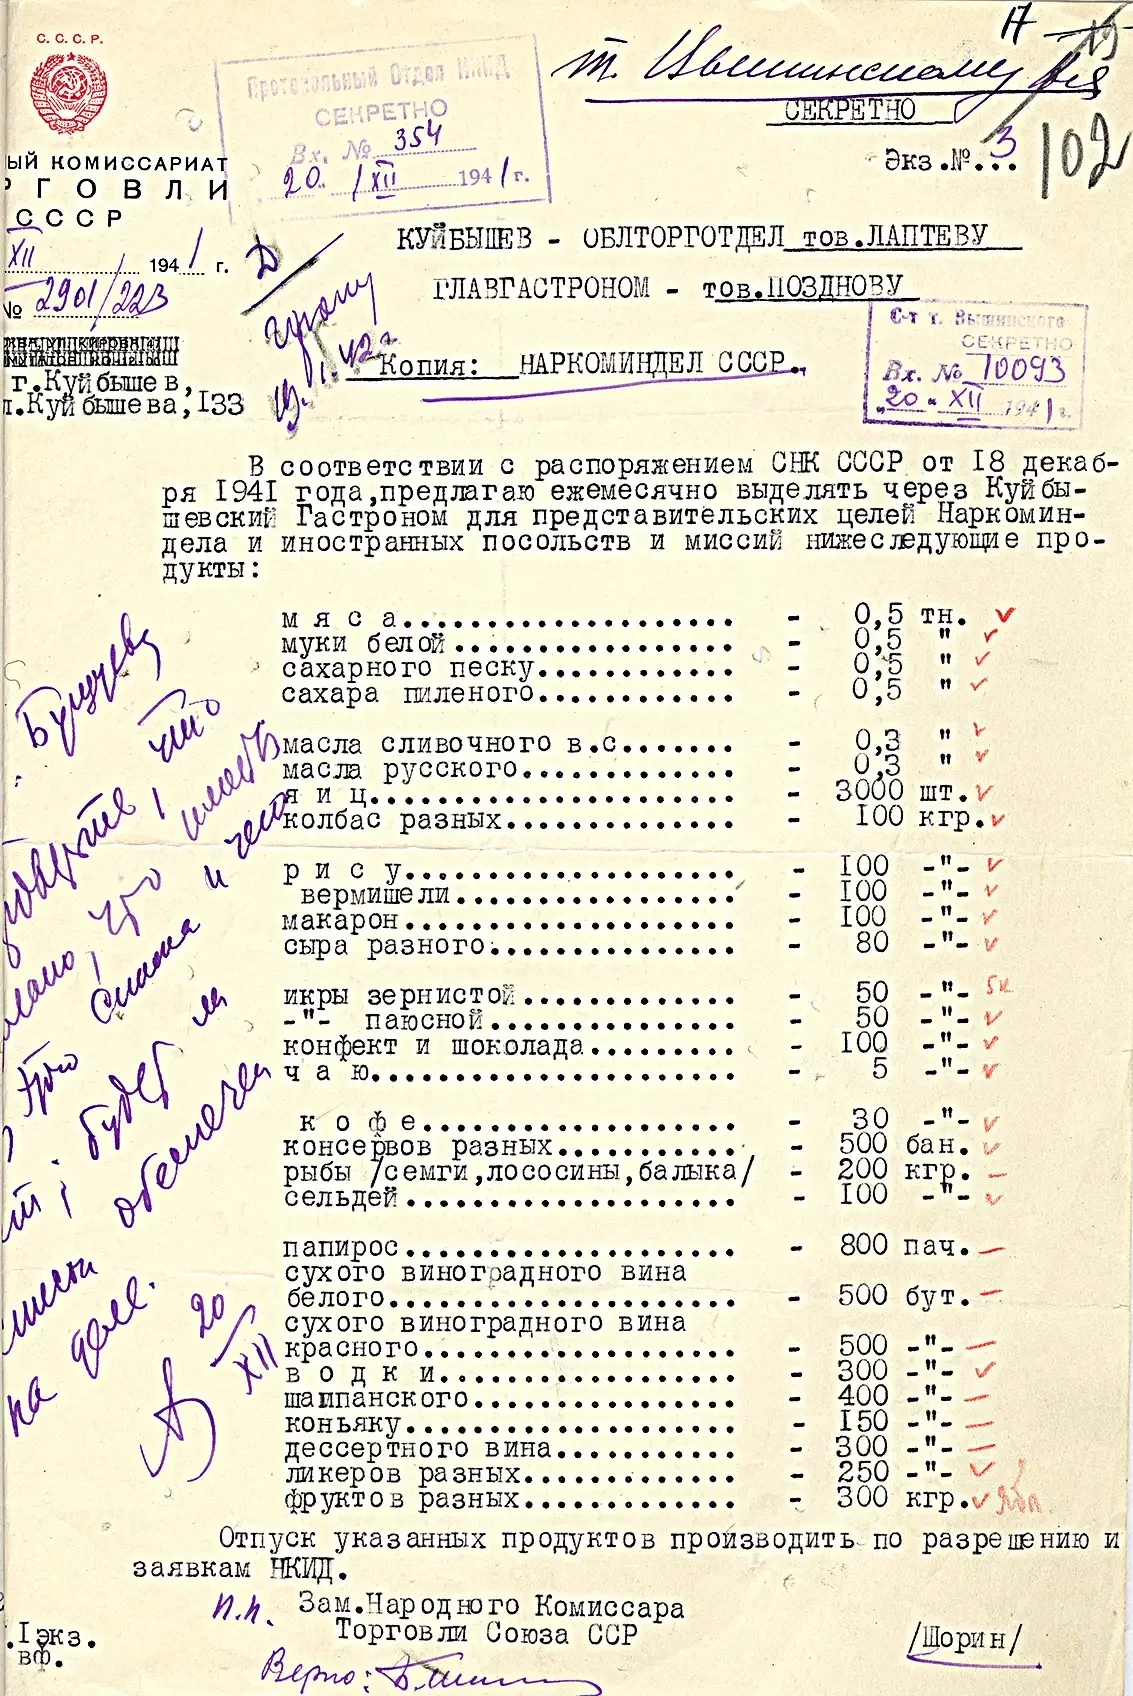 17
С. С. С. Р.
т. Цышинскому
Протокольный Отдел НКИД
СЕКРЕТНО
Вх. № 354
20 /XII 1941 г.
СЕКРЕТНО
Экз.№ 3...
102
ЫЙ КОМИССАРИАТ
РГОВЛИ
СССР
XII 1941 г.
№ 2901/223
г.Куйбышев,
л.Куйбышева,133
КУЙБЫШЕВ - ОБЛТОРГОТДЕЛ тов.ЛАПТЕВУ
ГЛАВГАСТРОНОМ - тов.ПОЗДНОВУ
Копия: НАРКОМИНДЕЛ СССР.
С-т т. Вышинского
СЕКРЕТНО
Вх. № 10093
"20" XII 1941 г.
Д
19.I.42г
В соответствии с распоряжением СНК СССР от 18 декаб-
ря 1941 года,предлагаю ежемесячно выделять через Куйбы-
шевский Гастроном для представительских целей Наркомин-
дела и иностранных посольств и миссий нижеследующие про-
дукты:
м я с а.................... - 0,5 тн.
муки белой................. - 0,5 "
сахарного песку............ - 0,5 "
сахара пиленого............ - 0,5 "
масла сливочного в.с....... - 0,3 "
масла русского............. - 0,3 "
я и ц...................... - 3000 шт.
колбас разных.............. - 100 кгр.
р и с у.................... - 100 -"-
вермишели................. - 100 -"-
макарон.................... - 100 -"-
сыра разного............... - 80 -"-
икры зернистой............. - 50 -"- 5к
-"- паюсной............... - 50 -"-
конфект и шоколада......... - 100 -"-
ч а ю...................... - 5 -"-
к о ф е................... - 30 -"-
консервов разных........... - 500 бан.
рыбы /семги,лососины,балыка/ - 200 кгр.
сельдей.................... - 100 -"-
папирос.................... - 800 пач.
сухого виноградного вина
белого..................... - 500 бут.
сухого виноградного вина
красного................... - 500 -"-
в о д к и.................. - 300 -"-
шампанского................ - 400 -"-
коньяку.................... - 150 -"-
дессертного вина........... - 300 -"-
ликеров разных............. - 250 -"-
фруктов разных............. - 300 кгр. Ябл.
Отпуск указанных продуктов производить по разрешению и
заявкам НКИД.
п.п. Зам.Народного Комиссара
Торговли Союза ССР /Шорин/
.1экз.
вф.
Верно:
что
и чего
будет ли
обеспечен
на деле.
20
XII